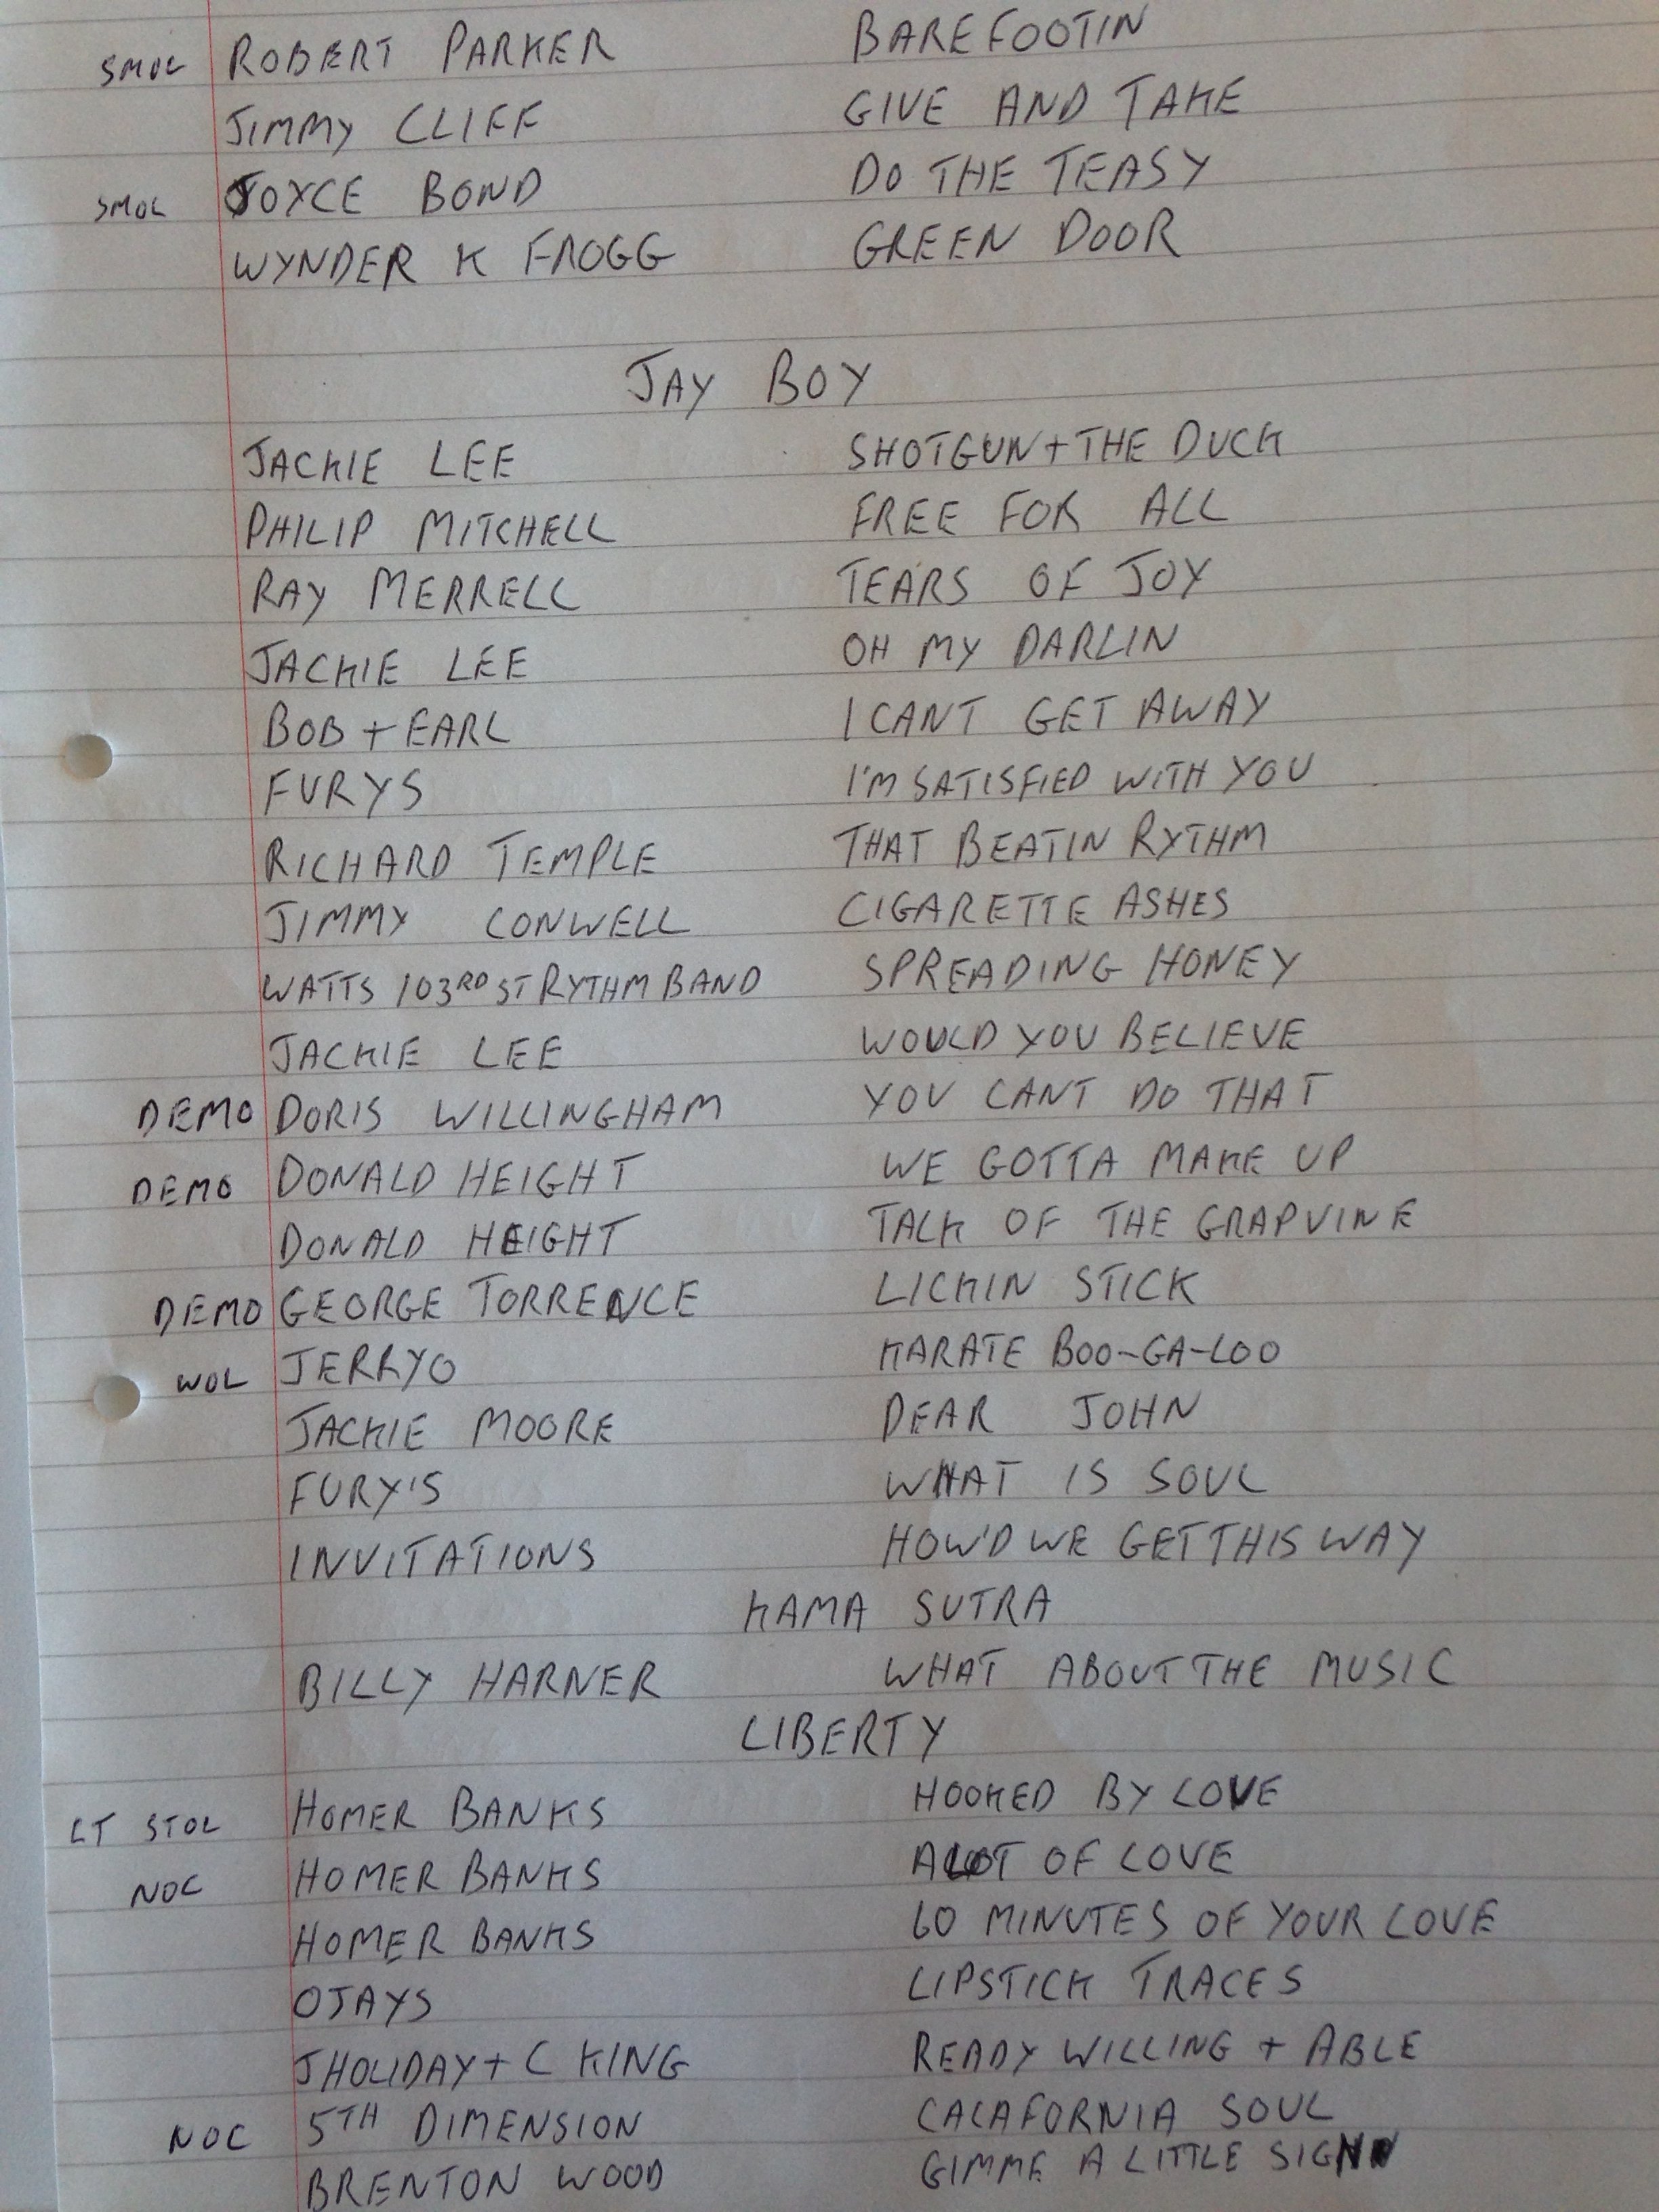 SMOL ROBERT PARKER BAREFOOTIN
JIMMY CLIFF GIVE AND TAKE
SMOL JOYCE BOND DO THE TEASY
WYNDER K FROGG GREEN DOOR
JAY BOY
JACKIE LEE SHOTGUN + THE DUCK
PHILIP MITCHELL FREE FOR ALL
RAY MERRELL TEARS OF JOY
JACKIE LEE OH MY DARLIN
BOB + EARL I CANT GET AWAY
FURYS I'M SATISFIED WITH YOU
RICHARD TEMPLE THAT BEATIN RYTHM
JIMMY CONWELL CIGARETTE ASHES
WATTS 103RD ST RYTHM BAND SPREADING HONEY
JACKIE LEE WOULD YOU BELIEVE
DEMO DORIS WILLINGHAM YOU CANT DO THAT
DEMO DONALD HEIGHT WE GOTTA MAKE UP
DONALD HEIGHT TALK OF THE GRAPVINE
DEMO GEORGE TORRENCE LICKIN STICK
WOL JERRYO KARATE BOO-GA-LOO
JACKIE MOORE DEAR JOHN
FURY'S WHAT IS SOUL
INVITATIONS HOW'D WE GET THIS WAY
KAMA SUTRA
BILLY HARNER WHAT ABOUT THE MUSIC
LIBERTY
LT STOL HOMER BANKS HOOKED BY LOVE
NOC HOMER BANKS A LOT OF LOVE
HOMER BANKS 60 MINUTES OF YOUR LOVE
OJAYS LIPSTICK TRACES
J HOLIDAY + C KING READY WILLING + ABLE
NOC 5TH DIMENSION CALAFORNIA SOUL
BRENTON WOOD GIMME A LITTLE SIGN